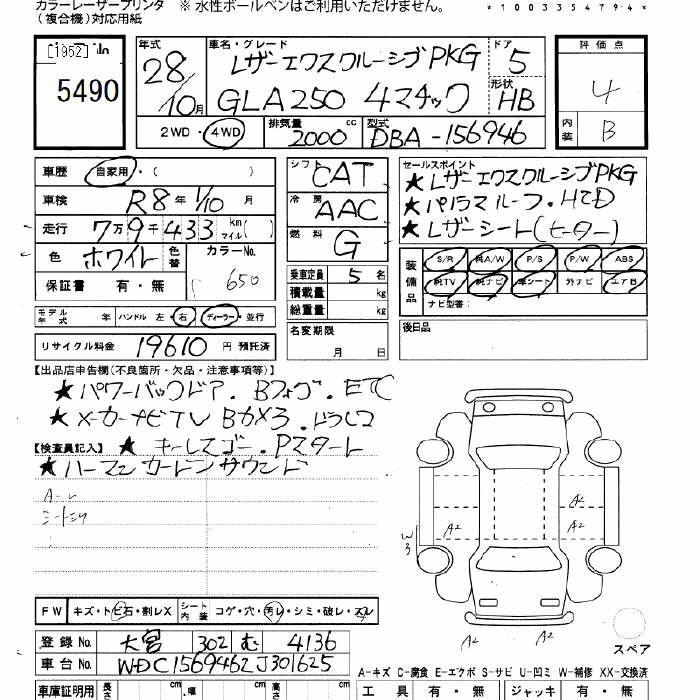 カラーレーザープリンタ ※ 水性ボールペンはご利用いただけません。
(複合機)対応用紙
*1003354794*
[1952]
5490
年式 車名・グレード ドア 評価点
28/10月 レザーエクスクルーシブPKG 5 4
GLA250 4マチック 形状 HB 内装 B
2WD・4WD 排気量 2000cc 型式 DBA-156946
車歴 自家用・( )
車検 R8年 1/10 月
走行 7万9千433 km マイル( )
色 ホワイト 色替 カラーNo. 650
保証書 有・無
モデル年式 年 ハンドル 左・右 ディーラー・並行
リサイクル料金 19610円 預託済
シフト CAT
冷房 AAC
燃料 G
乗車定員 5 名
積載量 kg
総重量 kg
名変期限
月 日
セールスポイント
★レザーエクスクルーシブPKG
★パノラマルーフ.HID
★レザーシート(ヒーター)
装備品 S/R 純A/W P/S P/W ABS
純TV 純ナビ 革シート 外ナビ エアB
ナビ型番:
後日品
【出品店申告欄(不良箇所・欠品・注意事項等)】
★パワーバックドア.Bフォグ.ETC
★メーカーナビTV Bカメラ.ドラレコ
【検査員記入】 ★キーレスゴー.Pスタート
★ハーマンカードンサウンド
A-レ
シートミソ
A2
A2
A2
W3
A2
A2
スペア
FW キズ・トビ石・割レX シート内装 コゲ・穴・汚レ・シミ・破レ・スレ
登録No. 大宮 302 む 4136
車台No. WDC1569462J301625
A-キズ C-腐食 E-エクボ S-サビ U-凹ミ W-補修 XX-交換済
車庫証明用 長さ cm 幅 cm 高さ cm 工具 有・無 ジャッキ 有・無